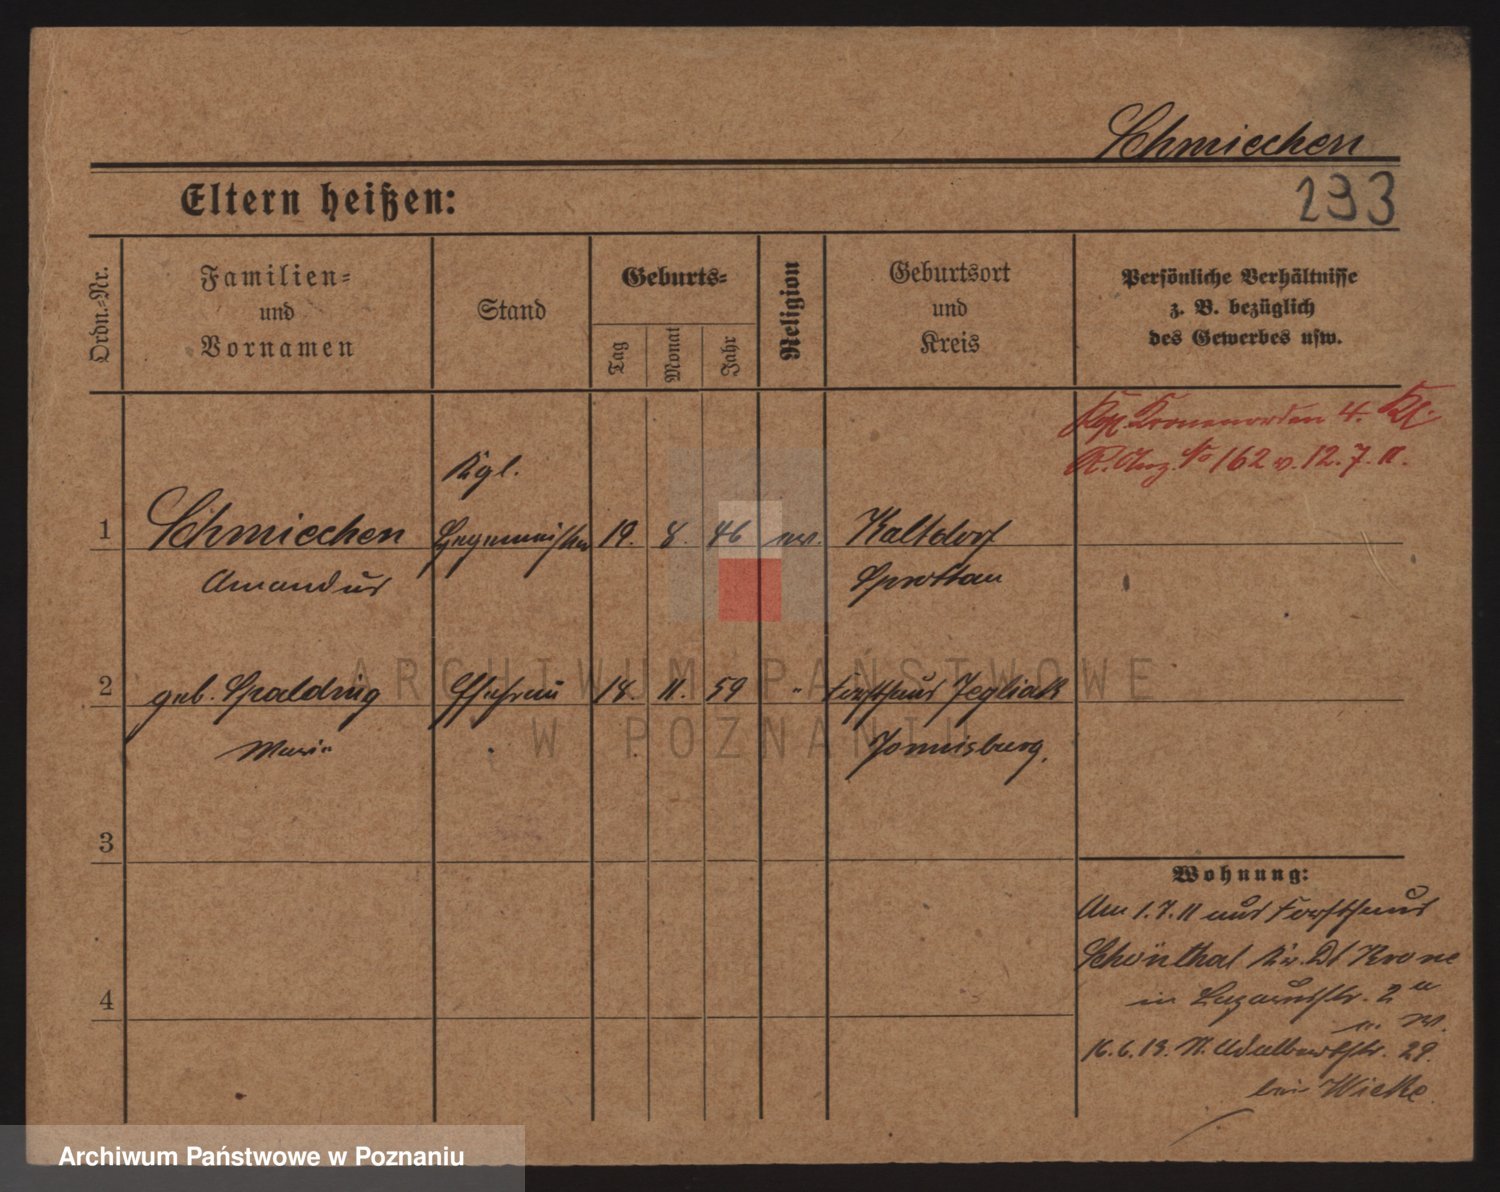 Schmiechen
Eltern heißen:
293
Ordn.-Nr.
Familien-
und
Vornamen
Stand
Geburts-
Tag
Monat
Jahr
Religion
Geburtsort
und
Kreis
Persönliche Verhältnisse
z. B. bezüglich
des Gewerbes usw.
Kgl. Kronenorden 4. Kl.
R. Anz. No 162 v. 12. 7. 11.
Kgl.
1 Schmiechen Hegemeister 19. 8. 46 ev. Kaltdorf
Amandus Sprottau
2 geb. Spalding Ehefrau 18. 11. 59 " Forsthaus Jegliak
Marie Johannisburg.
3
4
Wohnung:
Am 1.7.11 aus Forsthaus
Schönthal Kr. Dt Krone
in Lazarusstr. 2 a
16.6.13. St. Adalbertstr. 29.
bei Wielke
ARCHIWUM PAŃSTWOWE
W POZNANIU
Archiwum Państwowe w Poznaniu